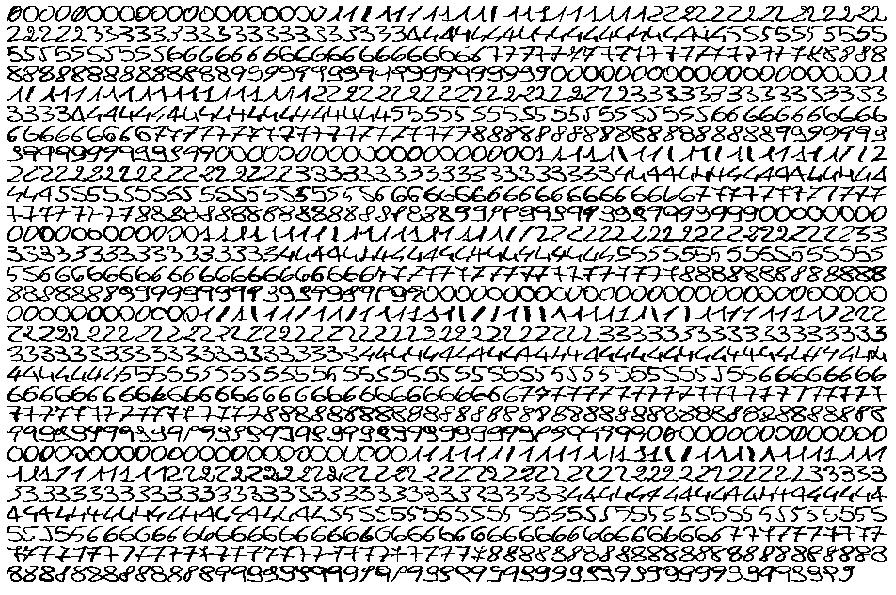 0000000000000000000011111111111111111111222222222222222
2222233333333333333333333444444444444444444445555555555
5555555555666666666666666666667777777777777777777788888
8888888888888889999999999999999999000000000000000000001
1111111111111111111222222222222222222223333333333333333
3333444444444444444444445555555555555555555566666666666
6666666667777777777777777777788888888888888888888999999
9999999999999000000000000000000001111111111111111111122
2222222222222222223333333333333333333344444444444444444
4445555555555555555555556666666666666666666777777777777
7777777788888888888888888888999999999999999999900000000
0000000000001111111111111111111112222222222222222222233
3333333333333333344444444444444444444455555555555555555
5566666666666666666666677777777777777777778888888888888
8888888999999999999999999900000000000000000000000000000
0000000000001111111111111111111111111111111111111111222
2222222222222222222222222222222222222333333333333333333
3333333333333333333333444444444444444444444444444444444
4444444555555555555555555555555555555555555555566666666
6666666666666666666666666666666677777777777777777777777
7777777777777777888888888888888888888888888888888888888
9999999999999999999999999999999999999999000000000000000
0000000000000000000000000111111111111111111111111111111
1111111111222222222222222222222222222222222222222233333
3333333333333333333333333333333333344444444444444444444
4444444444444444444455555555555555555555555555555555555
5555566666666666666666666666666666666666666667777777777
7777777777777777777777777777788888888888888888888888888
88888888888889999999999999999999999999999999999999999